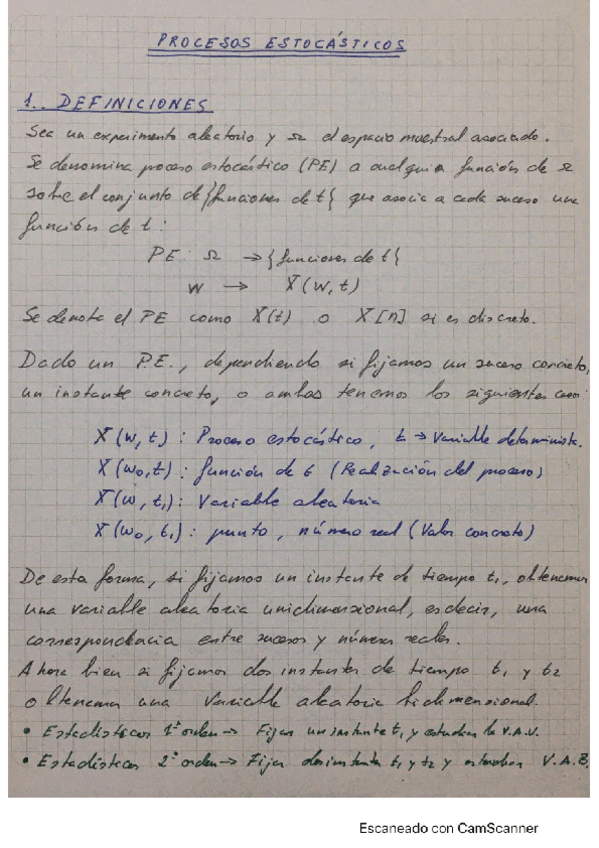 PROCESOS ESTOCÁSTICOS
1.. DEFINICIONES
Sea un experimento aleatorio y Ω el espacio muestral asociado.
Se denomina proceso estocástico (PE) a cualquier función de Ω
sobre el conjunto de {funciones de t} que asocia a cada suceso una
función de t:
PE: Ω → {funciones de t}
w → X(w,t)
Se denota el PE como X(t) o X[n] si es discreto.
Dado un P.E., dependiendo si fijamos un suceso concreto,
un instante concreto, o ambos tenemos los siguientes casos:
X(w,t): Proceso estocástico, t → Variable determinista.
X(w₀,t): función de t (Realización del proceso)
X(w,t₁): Variable aleatoria
X(w₀,t₁): punto, número real (Valor concreto)
De esta forma, si fijamos un instante de tiempo t₁, obtenemos
una variable aleatoria unidimensional, es decir, una
correspondencia entre sucesos y números reales.
Ahora bien si fijamos dos instantes de tiempo t₁ y t₂
obtenemos una variable aleatoria bidimensional.
• Estadísticos 1º orden → Fijar un instante t₁ y estudiar la V.A.U.
• Estadísticos 2º orden → Fijar dos instantes t₁ y t₂ y estudiar V.A.B.
Escaneado con CamScanner